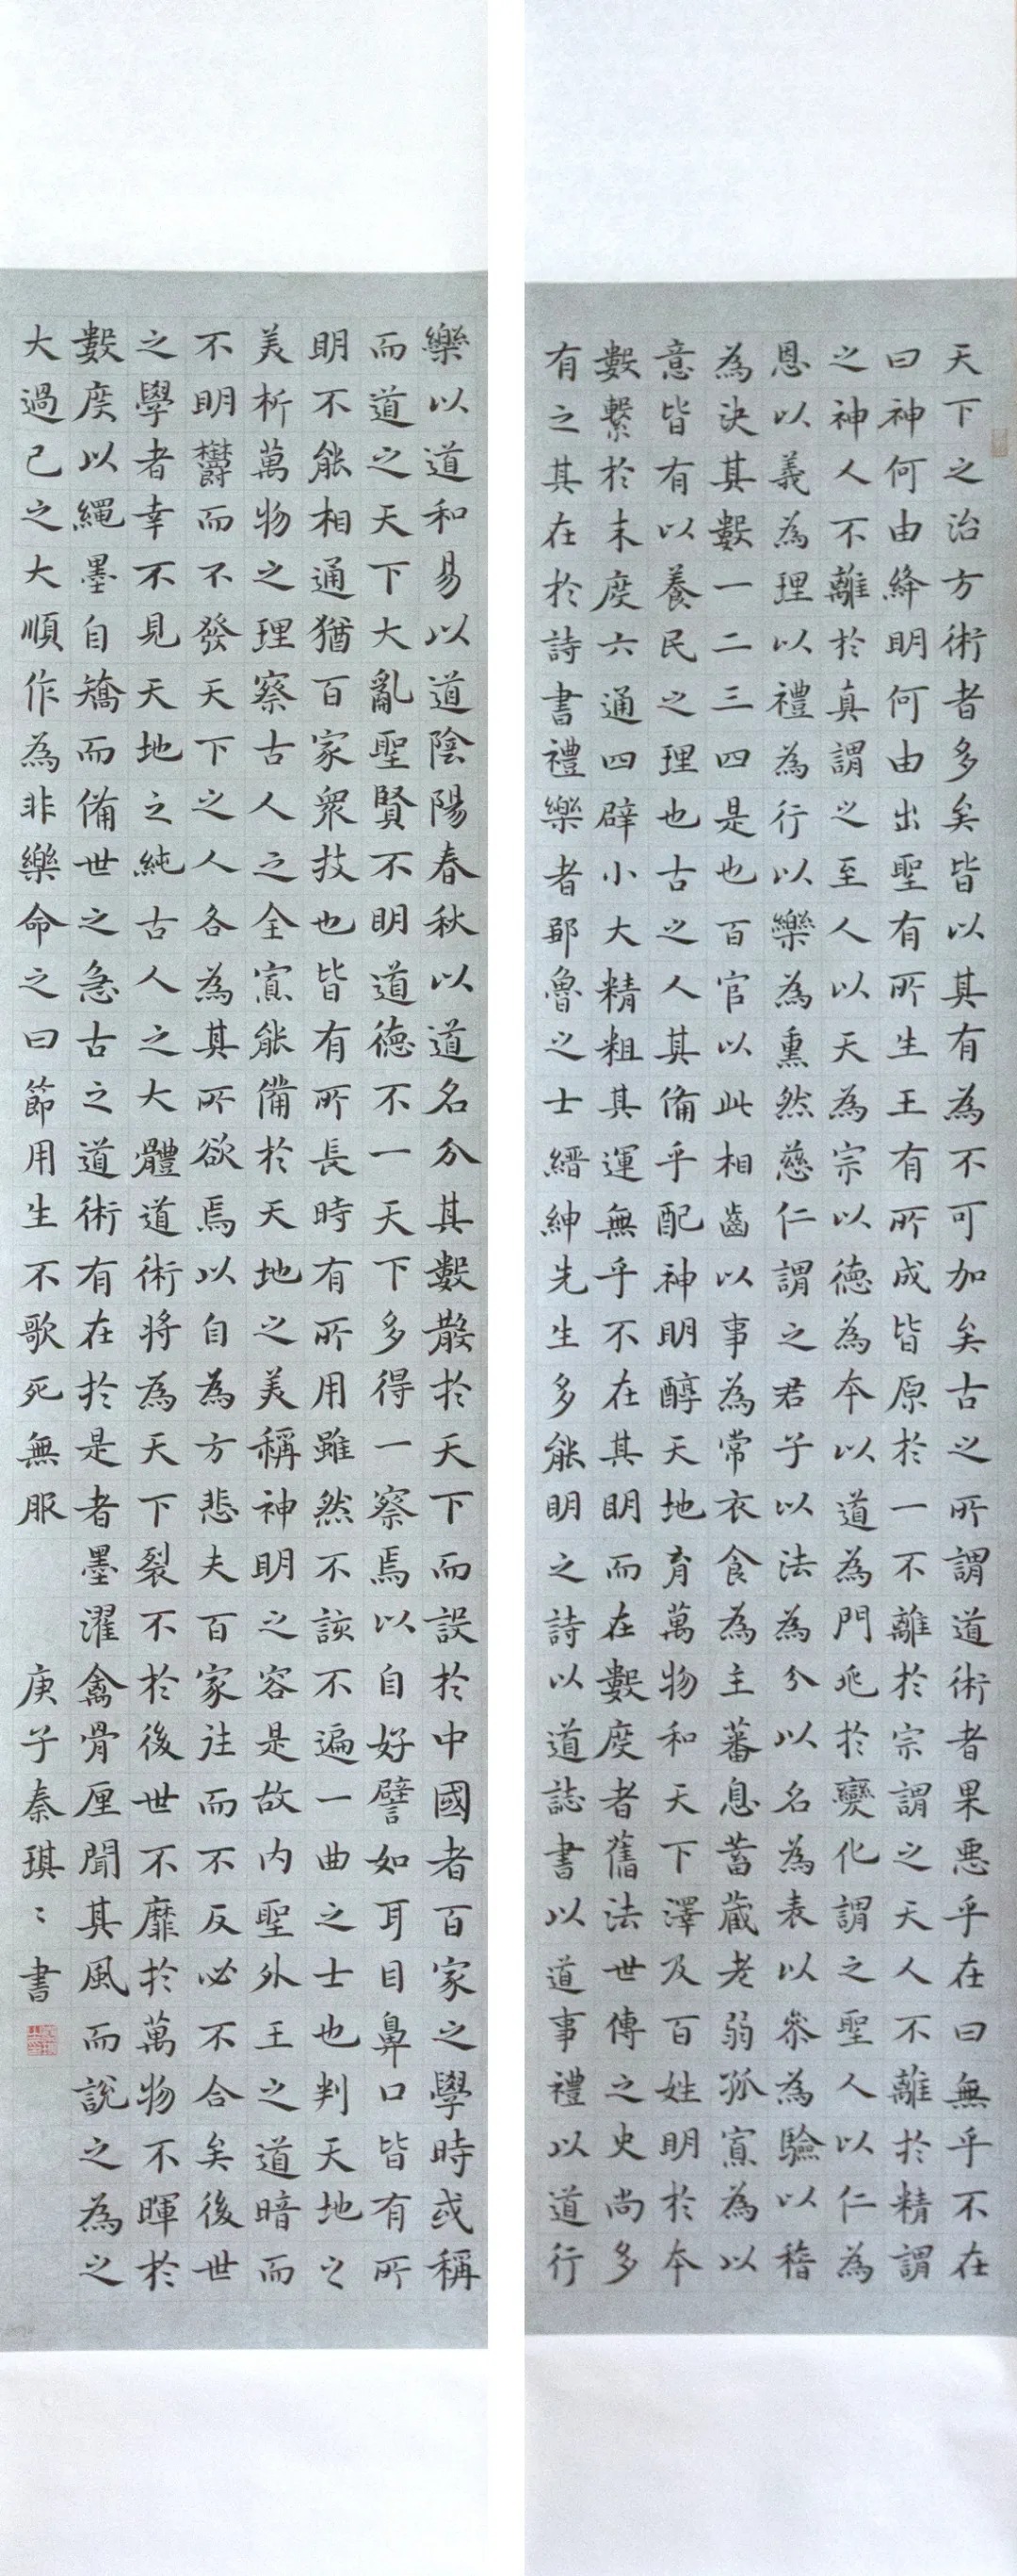 天下之治方術者多矣皆以其有為不可加矣古之所謂道術者果悪乎在曰無乎不在
曰神何由絳明何由出聖有所生王有所成皆原於一不離於宗謂之天人不離於精謂
之神人不離於真謂之至人以天為宗以德為本以道為門兆於變化謂之聖人以仁為
恩以義為理以禮為行以樂為熏然慈仁謂之君子以法為分以名為表以參為驗以稽
為決其數一二三四是也百官以此相齒以事為常衣食為主蕃息蓄藏老弱孤寡為以
意皆有以養民之理也古之人其備乎配神明醇天地育萬物和天下澤及百姓明於本
數繫於末度六通四辟小大精粗其運無乎不在其明而在數度者舊法世傳之史尚多
有之其在於詩書禮樂者鄒魯之士縉紳先生多能明之詩以道誌書以道事禮以道行
樂以道和易以道陰陽春秋以道名分其數散於天下而設於中國者百家之學時或稱
而道之天下大亂聖賢不明道德不一天下多得一察焉以自好譬如耳目鼻口皆有所
明不能相通猶百家衆技也皆有所長時有所用雖然不該不遍一曲之士也判天地之
美析萬物之理察古人之全寡能備於天地之美稱神明之容是故内聖外王之道暗而
不明欝而不發天下之人各為其所欲焉以自為方悲夫百家往而不反必不合矣後世
之學者幸不見天地之純古人之大體道術將為天下裂不於後世不靡於萬物不暉於
數度以繩墨自矯而備世之急古之道術有在於是者墨濯禽骨厘聞其風而說之為之
大過已之大順作為非樂命之曰節用生不歌死無服 庚子秦琪〻書